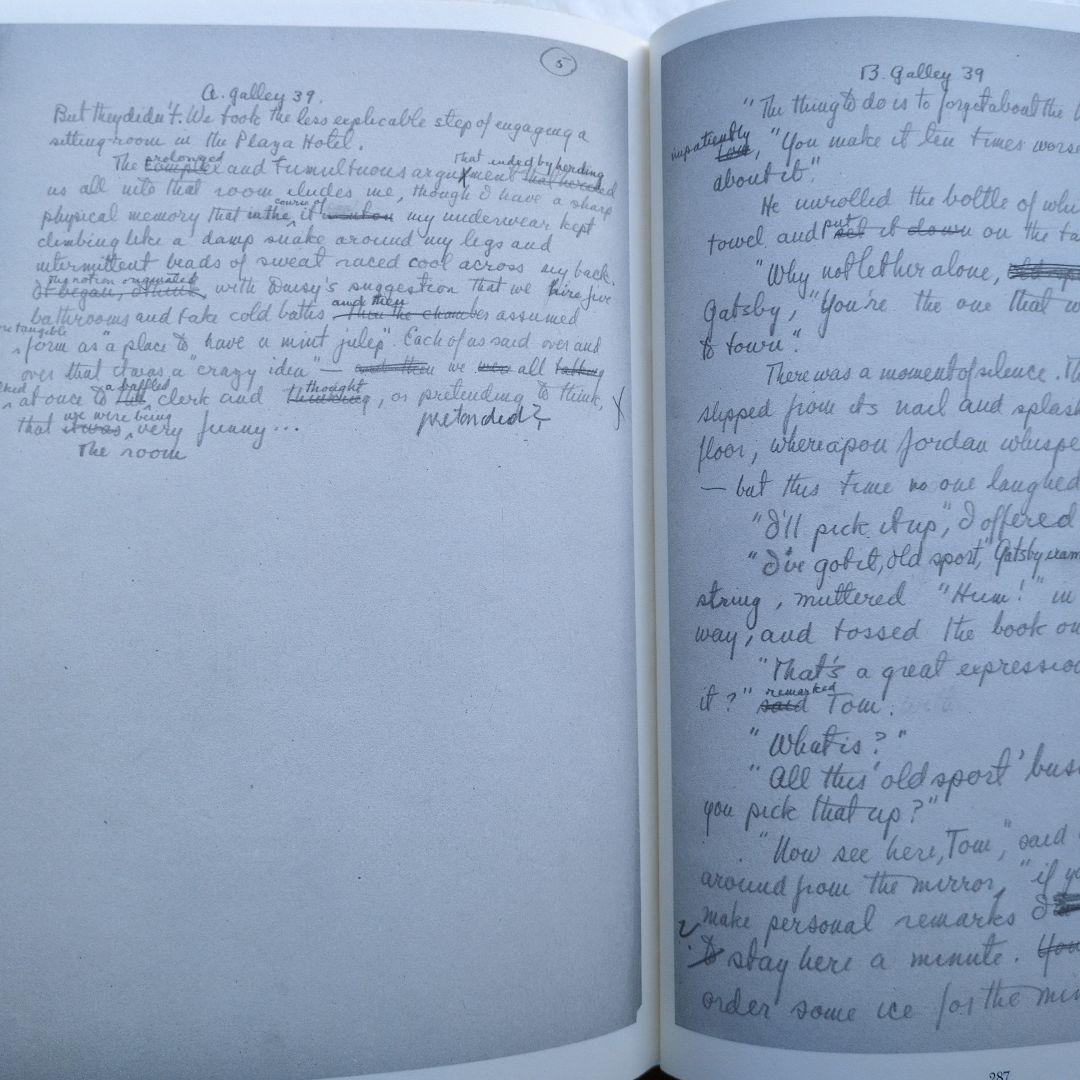 5
A. Galley 39.
But they didn't. We took the less explicable step of engaging a
sitting-room in the Plaza Hotel.
prolonged That ended by herding
The complex and tumultuous argument that herded
us all into that room eludes me, though I have a sharp
course of
physical memory that in the it my underwear kept
climbing like a damp snake around my legs and
intermittent beads of sweat raced cool across my back.
The notion originated
It began, I think, with Daisy's suggestion that we hire five
and then
bathrooms and take cold baths then the chamber assumed
tangible
form as "a place to have a mint julep". Each of us said over and
over that it was a "crazy idea" — and then we were all talking
a baffled
at once to clerk and thinking, or pretending to think,
thought
we were being
that it was very funny...
pretended?
The room
B. Galley 39
"The thing to do is to forget about the
impatiently
"You make it ten times worse
about it."
He unrolled the bottle of
put
towel and set it down on the
"Why not let her alone, old
Gatsby, "You're the one that
to town."
There was a moment of silence.
slipped from its nail and
floor, whereupon Jordan
— but this time no one laughed
"I'll pick it up", I offered
"I've got it, old sport," Gatsby
string, muttered "Hum!" in
way, and tossed the book
"That's a great
remarked
it?" said Tom.
"What is?"
"All this 'old sport'
you pick that up?"
"Now see here, Tom", said
around from the mirror, "if
make personal remarks I
to stay here a minute. You
order some ice for the
287